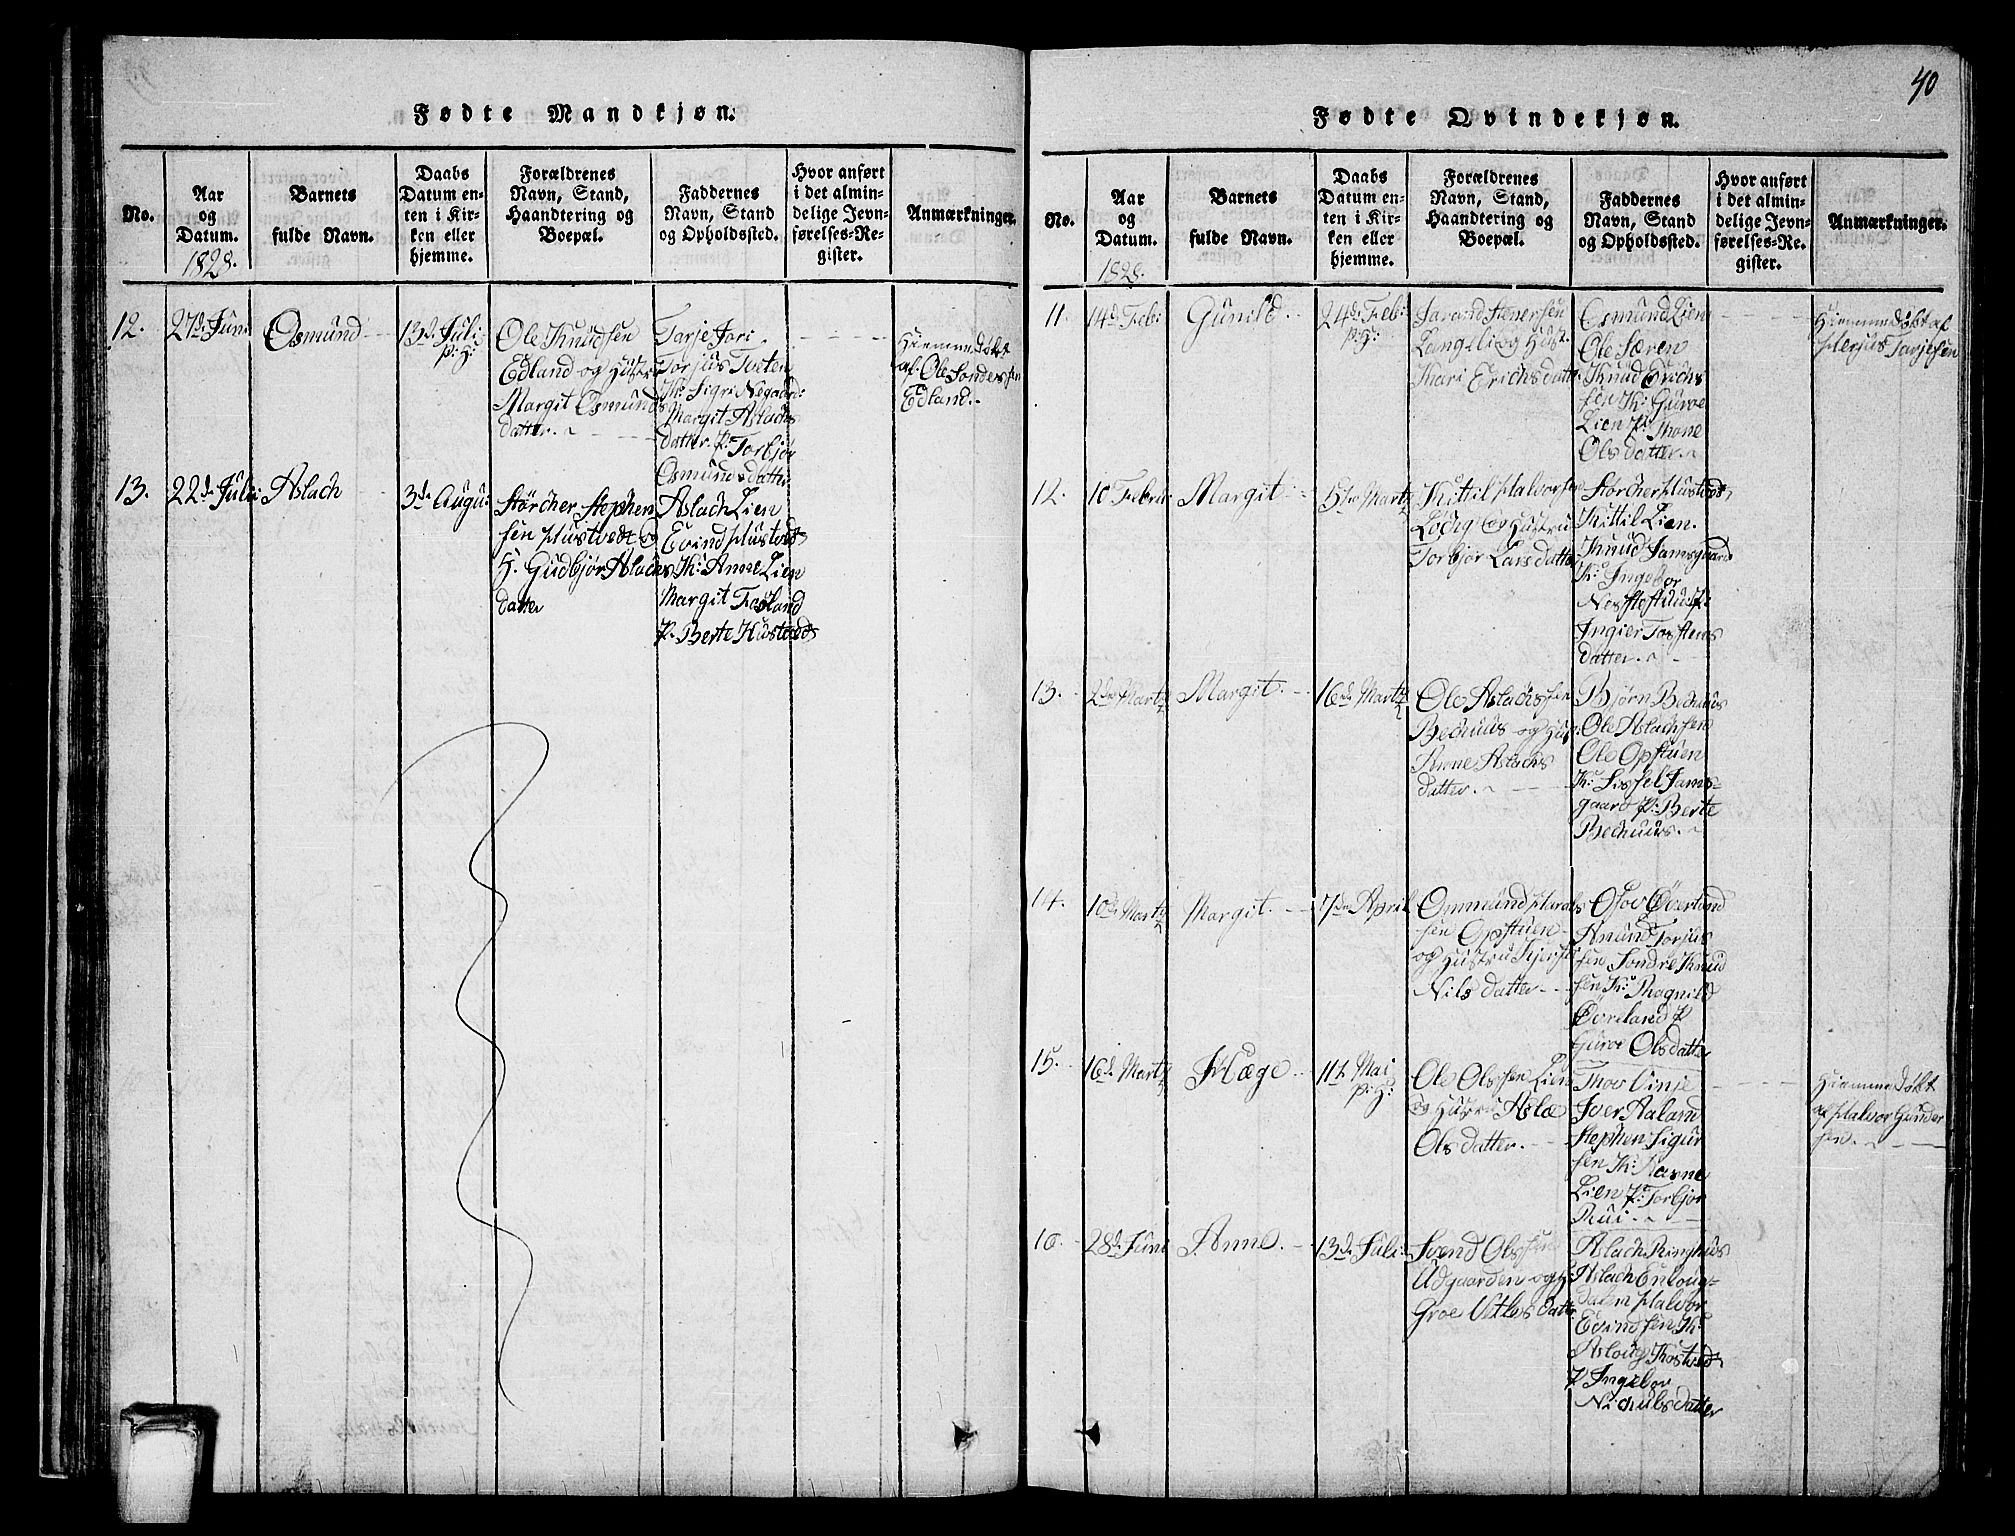 Fødte Mandkjøn.
No.
Aar
og
Datum.
1828.
Barnets
fulde Navn.
Daabs
Datum en-
ten i Kir-
ken eller
hjemme.
Forældrenes
Navn, Stand,
Haandtering og
Boepæl.
Faddernes
Navn, Stand
og Opholdssted.
Hvor anført
i det almin-
delige Jevn-
førelses-Re-
gister.
Anmærkninger.
12.
27d Juni
Osmund
13d Juli
P: H:
Ole Knudsen
Edland og Hustru
Margit Osmunds
datter.
Tarje Jori
Torjus Tveten
K: Sigri Negaard:
Margit Aslachs
datter P: Torbjør
Osmundsdatter
Hiemmedøbt
af Ole Sondresen
Edland.
13.
22de Juli
Aslach
3de Augu:
Størcher Stephen
sen Hustvedt og
H. Gudbjør Aslachs
datter
Aslach Lien
Evind Hustvedt
K: Anne Lien
Margit Fosland
P. Berte Hustvedt
40
Fødte Qvindekjøn.
No.
Aar
og
Datum.
1828.
Barnets
fulde Navn.
Daabs
Datum en-
ten i Kir-
ken eller
hjemme.
Forældrenes
Navn, Stand,
Haandtering og
Boepæl.
Faddernes
Navn, Stand
og Opholdssted.
Hvor anført
i det almin-
delige Jevn-
førelses-Re-
gister.
Anmærkninger.
11.
14d Feb:
Gunild
24d Feb:
P: H:
Jarand Stenersen
Langeli og Hust:
Kari Erichsdatter
Osmund Lien
Ole Særen
Knud Erichs
sen K: Guroe
Lien P: Thone
Olsdatter.
Hiemmedøbt af
Herjus Tarjesen
12.
10 Febru:
Margit
5te Marty
Kittil Halvorsen
Lochg og Hustru
Torbjør Larsdatter
Størcher Hustvedt
Kittil Lien.
Knud Jamsgaard
K: Ingebor
Nesstestuu P:
Ingier Torstens
datter.
13.
2den Marty
Margit.
16de Marty
Ole Aslachssen
Bechuus og Hus:
Anne Aslachs
datter.
Bjørn Bechuus
Ole Aslachsen
Ole Opstuen
K: Sissel Jams-
gaard P: Berte
Bechuus.
14.
10de Marty
Margit.
7de April
Ommund Harals
sen Opstuen
og Hustru Kjersti
Nils datter
Osov Øverland
Anund Torjus
sen Sondre Knud
sen K: Ragnild
Øverland P
Guroe Olsdatter
15.
16d Marty
Hæge
11t. Mai
P: H:
Ole Olssen Lien
og Hustru Aslæ
Olsdatter.
Thov Vinje
Iver Aaland
Stephen Sigur
sen K: Aasne
Lien P: Torbjør
Rui.
Hiemmedøbt
af Halvor Gunder
sen.
16.
28d Juni
Anne.
13de Juli:
Svend Olssen
Udgaarden og H:
Groe Vetlesdatter
Aslach Ringhus
Aslach Enloug-
dalen Halvor
Evindsen K:
Asloug Kostvedt
P Ingebor
Nichulsdatter